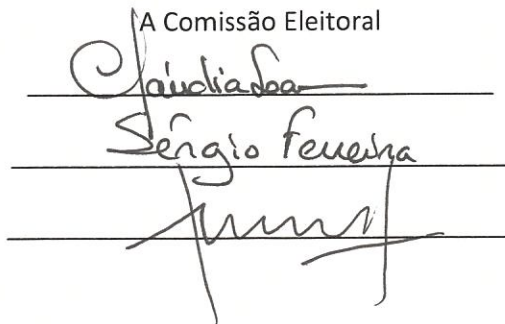 A Comissão Eleitoral
Cláudia
Sérgio Ferreira